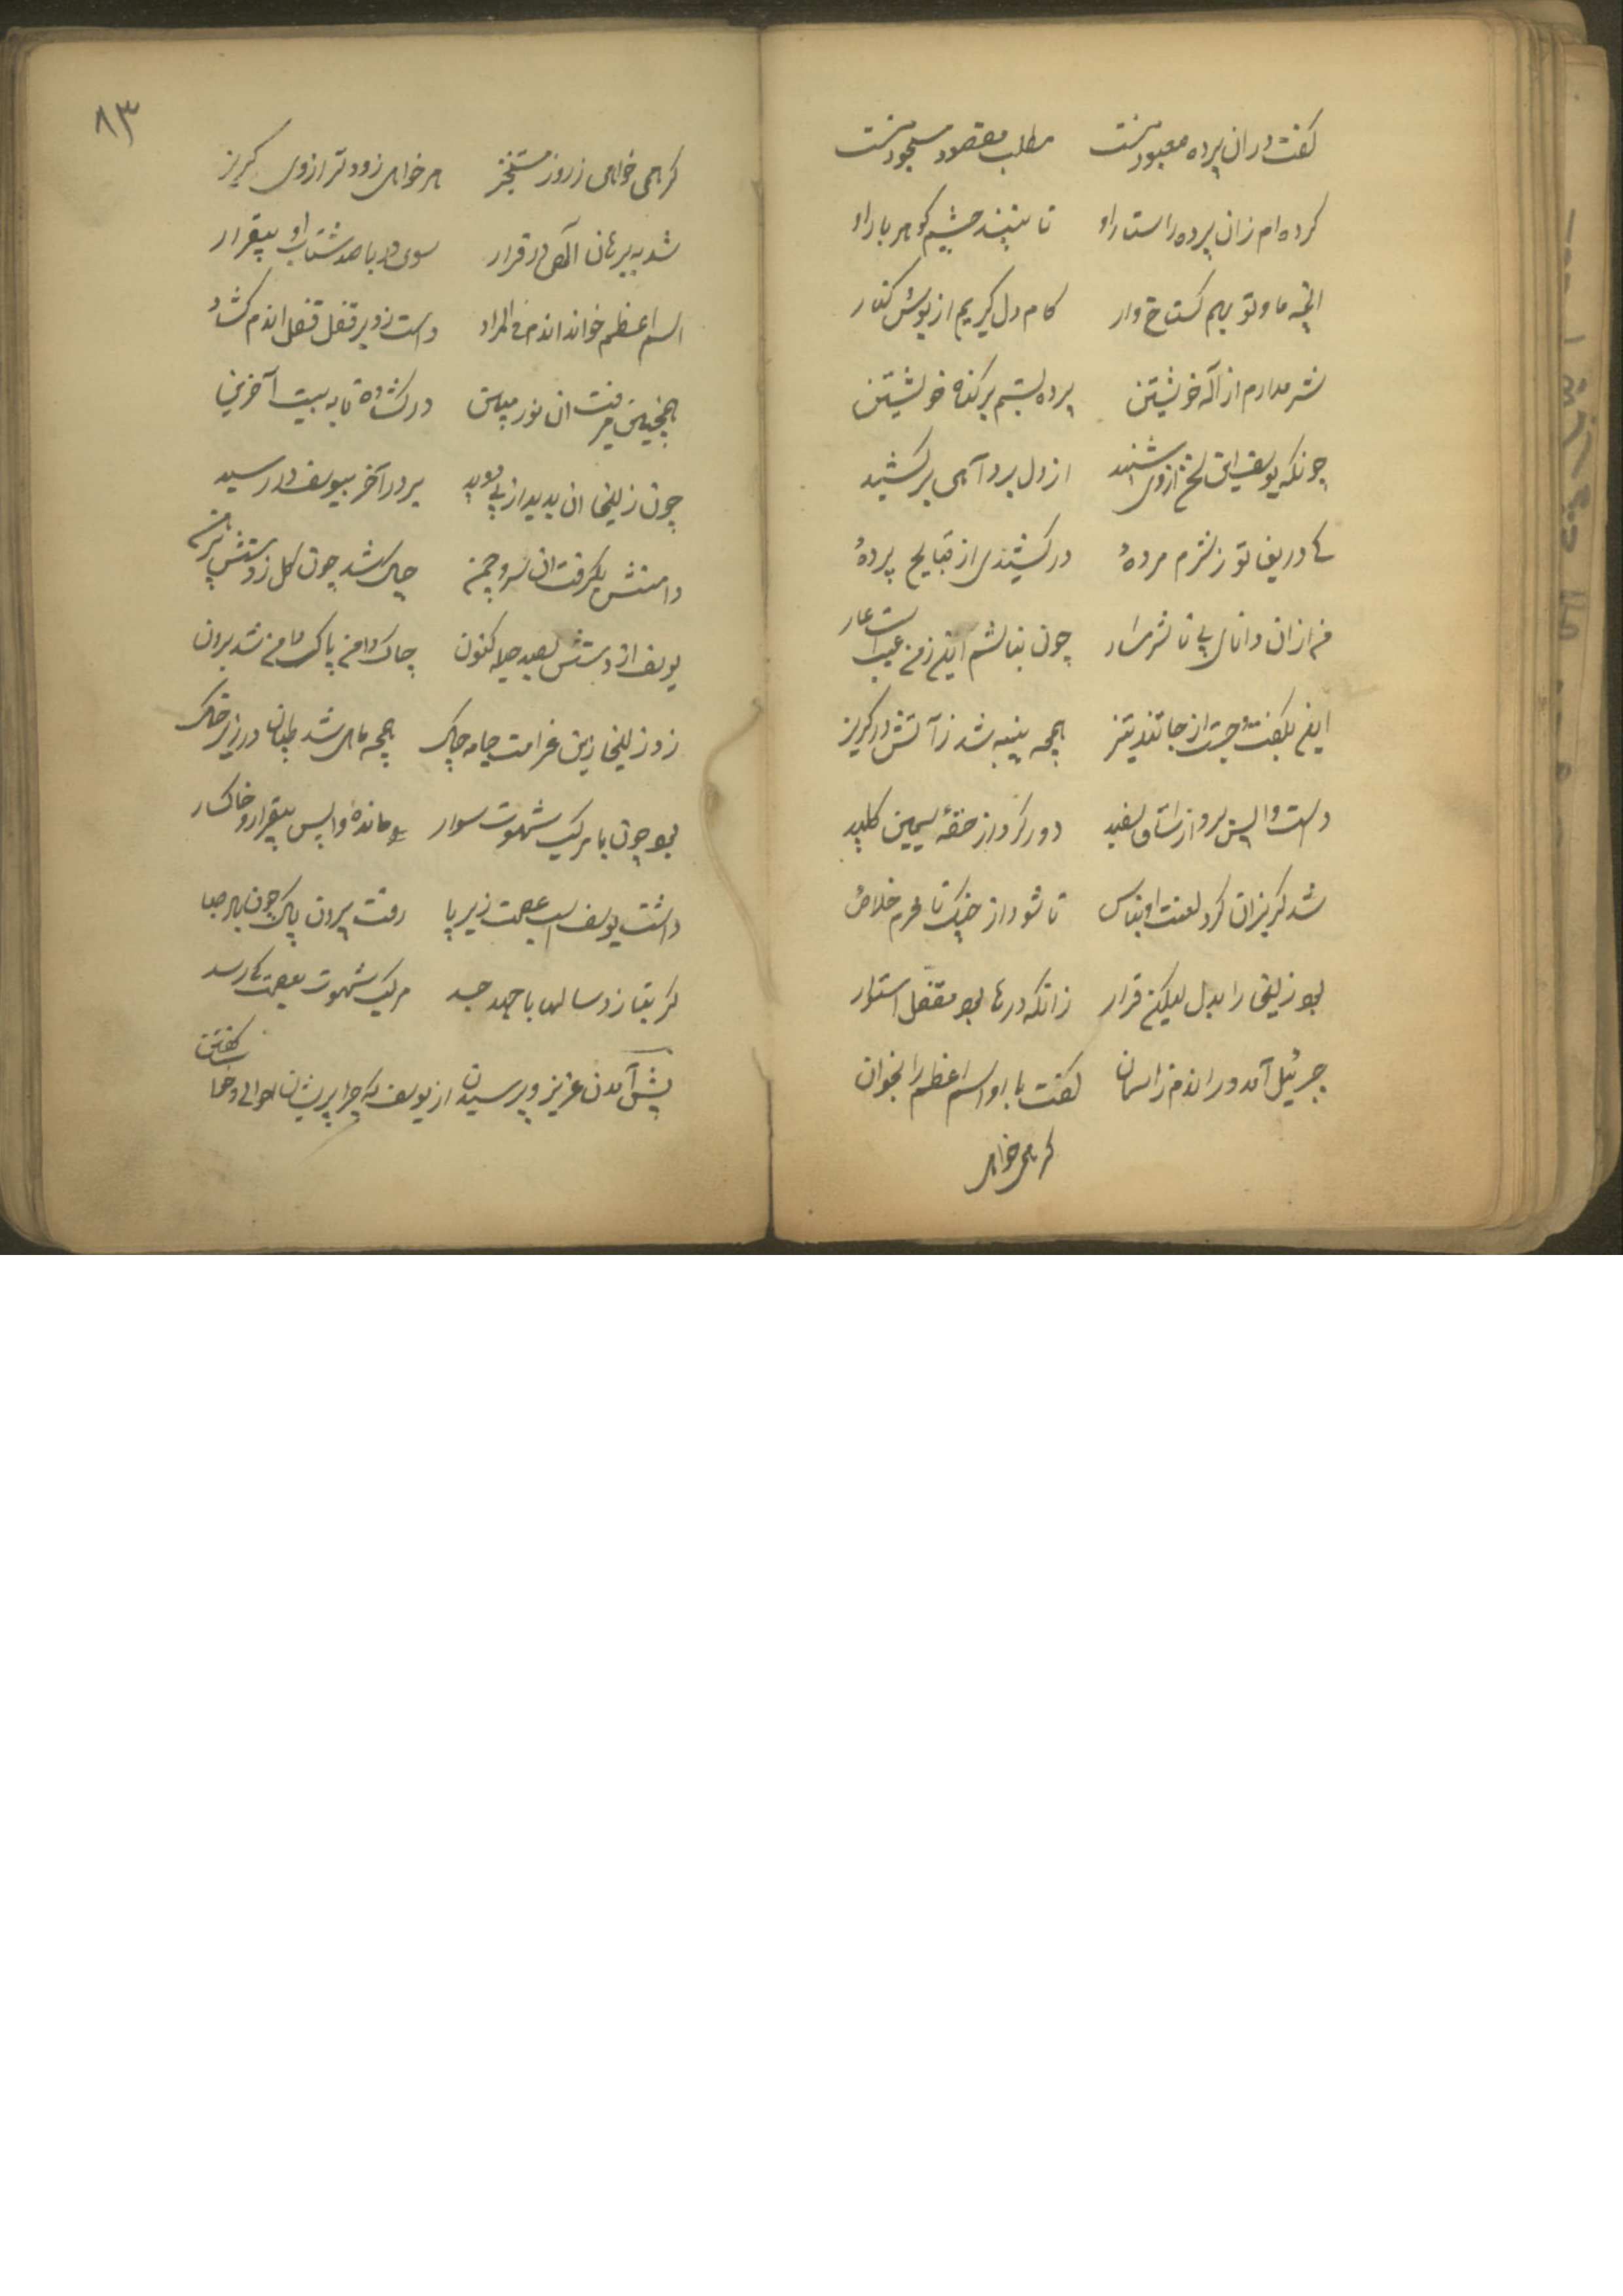 گفت دران پرده معبود منست مطلب مقصود مسجود منست
کرده ام زان پرده راستار او تا نبیند چشم گوهر بار او
انچه ما و تو بهم گستاخ وار کام دل گیریم از بوس کنار
شرم دارم از اله خویشتن پرده بستم بر گناه خویشتن
چونکه یوسف این سخن از وی شنید از دل پر درد آهی برکشید
کای دریغا تو ز شرم مردهٔ در کشیدی از قبایح پردهٔ
من ازان دانای بی تا شرمسار چون نباشم اینم زمن عیب است عار
این بگفت و جست از جا تند تیز همچه پنبه شد ز آتش در گریز
دست واپس برد از ساق سفید دور کرد از حقهٔ سیمین کلید
شد گریزان کرد لعنت او بناس تا شود از چنگ نامحرم خلاص
بود زلیخا را بدل لیکن قرار زانکه درها بود مقفل استوار
جبرئیل آمد دراندم ز اسمان گفت با او اسم اعظم را بخوان
گر همی خواهی
۸۳
گر همی خواهی ز روز رستخیز هر خواهی زودتر از وی گریز
شد به برهان الهی در قرار سوی در با صد شتاب او بیقرار
اسم اعظم خواند اندم فی المراد دست زد بر قفل قفل اندم گشاد
همچنین میرفت ان نور مبین در گشاده تا به بیت آخرین
چون زلیخا ان بدید از پی دوید بر در آخر بیوسف در رسید
دامنش بگرفت ان سرو چمن چاک شد چون گل ز دستش پیرهن
یوسف از دستش بصد حیله کنون چاک دامن پاک دامن شد برون
زد زلیخا زین غرامت جامه چاک همچه ماهی شد طپان در زیر خاک
بود چون با مرکب شهوت سوار ماندهٔ واپس بیقرار و خاکسار
داشت یوسف اسب عصمت زیر پا رفت بیرون پاک چون باد صبا
گر بتازد سالها با جهد جد مرکب شهوت بعصمت کی رسد
پیش آمدن عزیز و پرسیدن از یوسف که چرا پریشان احوالی و خفا گفتن